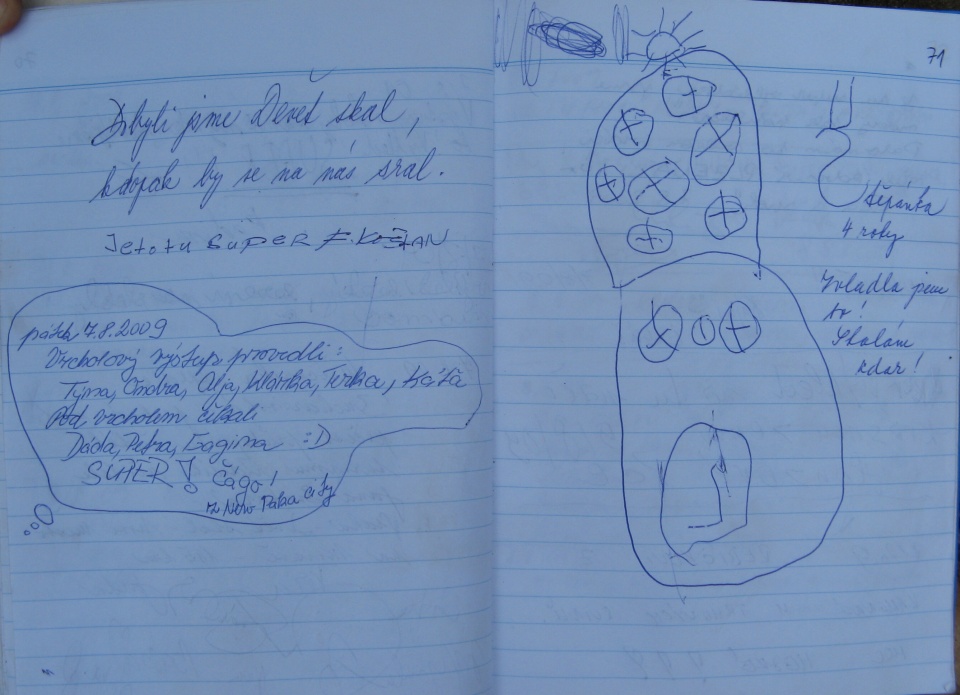 Dobyli jsme Devět skal,
kdopak by se na nás sral.
Je to tu SUPER
pátek 7.8.2009
Vrcholový výstup provedli:
Týna, Ondra, Alja, Klárka, Terka, Káťa
Pod vrcholem čekali
Dáda, Petra, Gagina :D
SUPER! Čágo!
z Novo Paka city
71
Štěpánka
4 roky
Zvládla jsme
to!
Skalám
zdar!